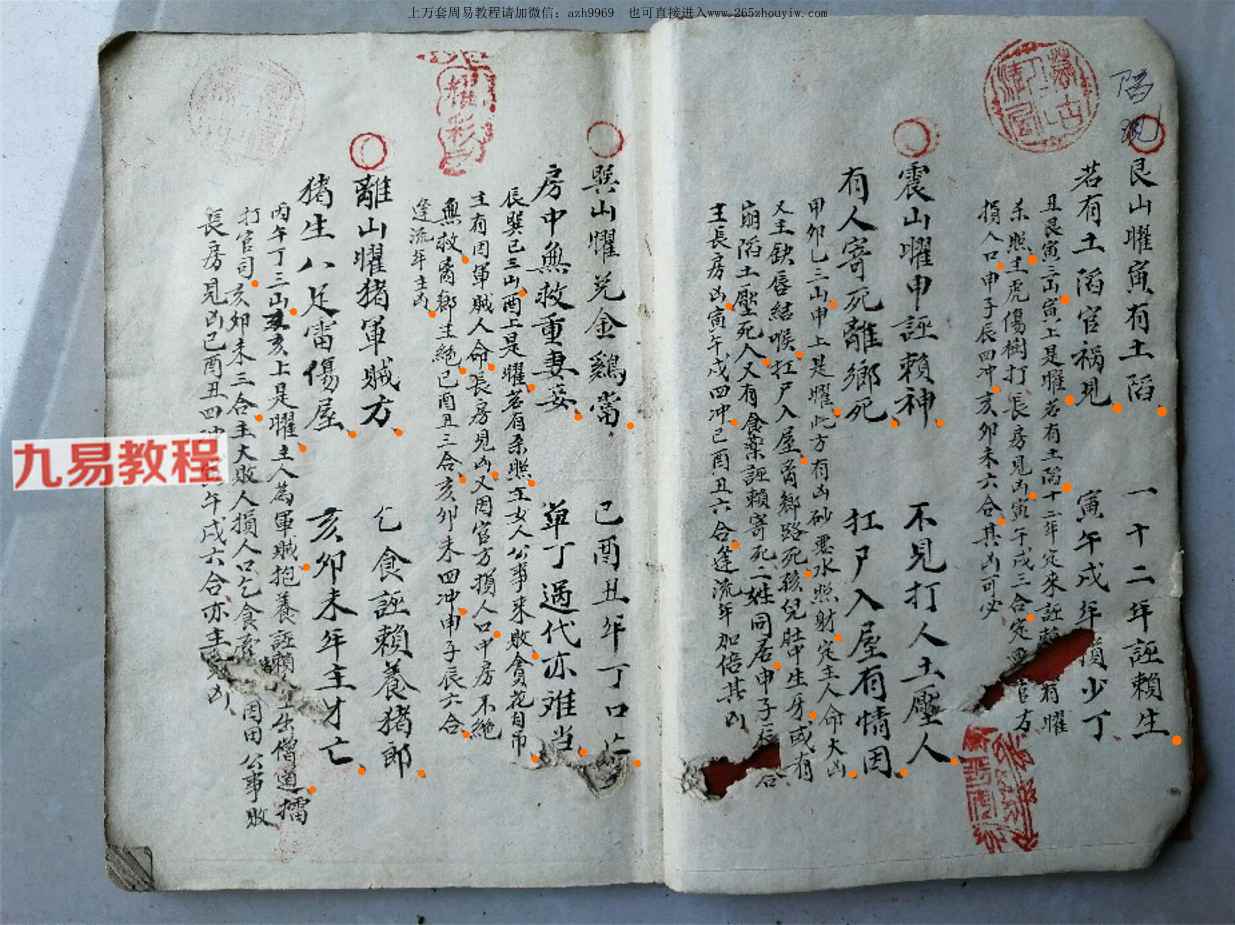 上万套周易教程请加微信：azh9969　也可直接进入www.265zhouyiw.com
艮山曜寅有土滔 一十二年誣賴生
若有土滔官祸見 寅午戌年 少丁
丑艮寅三山寅上是曜若有土滔十二年定來誣賴 有曜
杀照主虎傷樹打長房見凶寅午戌三合定 官方
損人口申子辰四冲亥卯未六合其凶可必
震山曜申誣賴神 不見打人土壓人
有人寄死離鄉死 扛尸入屋有情因
甲卯乙三山申上是曜此方有凶砂惡水照財定主人命大凶
又主缺唇結喉扛尸入屋 鄉路死孩兒肚中生牙或有
崩滔土壓死人又有食藥誣賴寄死二姓同居申子辰 合
主長房凶寅午戌四冲巳酉丑六合逢流年加倍其凶
巽山曜兑金鷄當 巳酉丑年丁口亡
房中無救重妻妾 單丁過代亦难当
辰巽巳三山酉上是曜若有杀照主女人公事來敗貪花自吊
主有因軍賊人命長房見凶又因官方損人口中房不絶
無救 鄉主絶巳酉丑三合亥卯未四冲申子辰六合
逢流年主凶
離山曜猪軍賊方 乞食誣賴養猪郎
猪生八足雷傷屋 亥卯未年主才亡
丙午丁三山亥亥上是曜主人為軍賊抱養誣賴 出僧道擂
打官司亥卯未三合主大敗人損人口乞食 因田公事敗
長房見凶巳酉丑四冲 午戌六合亦主 凶
九易教程